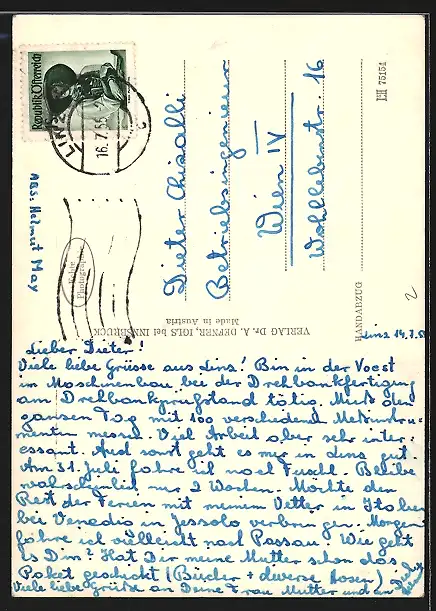 Republik Österreich
LINZ
16.7.55
Abs: Helmut May
Echte
Photographie
Dieter Chizalli
Betriebsingenieur
Wien IV
Wohllebenstr. 16
75151
HANDABZUG
VERLAG Dr. A. DEFNER, IGLS bei INNSBRUCK
Made in Austria
2
Linz 14.7.5
Lieber Dieter!
Viele liebe Grüsse aus Linz! Bin in der Voest
im Maschinenbau bei der Drehbankfertigung
am Drehbankprüfstand tätig. Muss den
ganzen Tag mit 100 verschiedenen Messinstru-
menten messen. Viel Arbeit aber sehr inter-
essant. Auch sonst geht es mir in Linz gut.
Am 31. Juli fahre ich nach Fuschl. Bleibe
wahrscheinlich nur 2 Wochen. Möchte den
Rest der Ferien mit meinem Vetter in Italien
bei Venedig in Jessolo verbringen. Morgen
fahre ich vielleicht nach Passau. Wie geht
es Dir? Hat Dir meine Mutter schon das
Paket geschickt (Bücher + diverse Hosen)
Viele liebe Grüße an Deine Frau Mutter und an